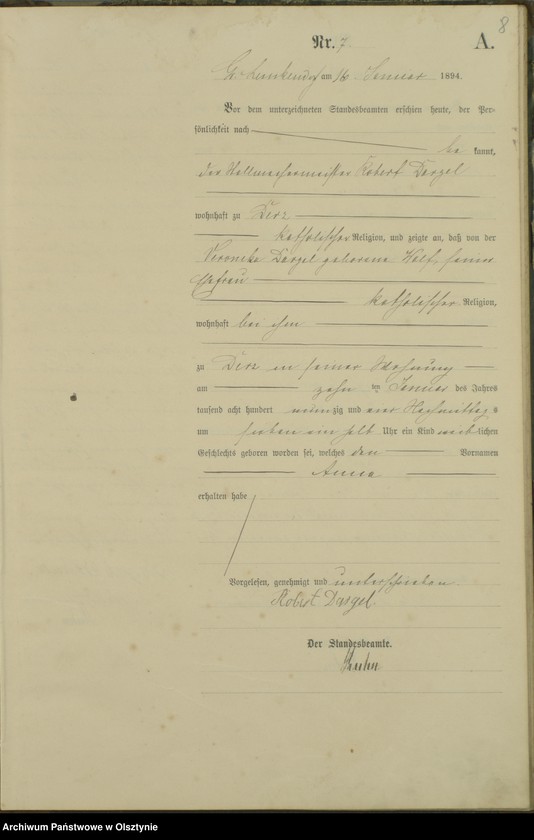 8
Nr. 7
A.
am 16 Januar 1894.
Vor dem unterzeichneten Standesbeamten erschien heute, der Per-
sönlichkeit nach
be kannt,
der Robert Dargel
wohnhaft zu Derz
katholischer Religion, und zeigte an, daß von der
Veronika Dargel geborene Wolf, seiner
Ehefrau
katholischer Religion,
wohnhaft bei ihm
zu Derz in seiner Wohnung
am zehn ten Januar des Jahres
tausend acht hundert neunzig und vier Nachmittags
um sieben ein halb Uhr ein Kind weiblichen
Geschlechts geboren worden sei, welches den Vornamen
Anna
erhalten habe
Vorgelesen, genehmigt und unterschrieben.
Robert Dargel
Der Standesbeamte.
Archiwum Państwowe w Olsztynie